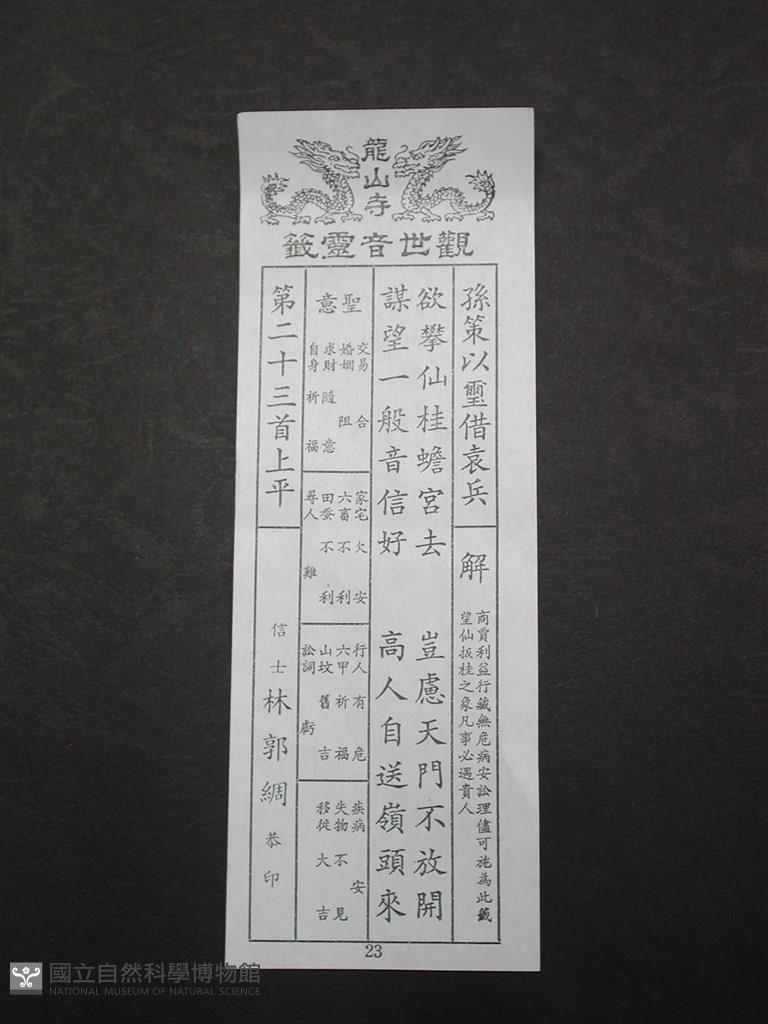 龍山寺
觀世音靈籤
孫策以璽借袁兵
解
商賈利益行藏無危病安訟理儘可施為此籤
望仙扳桂之象凡事必遇貴人
欲攀仙桂蟾宮去
豈慮天門不放開
謀望一般音信好
高人自送嶺頭來
聖意
交易 合
婚姻 阻
求財 隨意
自身 祈福
家宅 欠安
六畜 不利
田蚕 不利
尋人 難
行人 有危
六甲 祈福
山坟 舊吉
訟詞 虧
疾病 安
失物 不見
移徙 大吉
第二十三首上平
信士 林郭綢 恭印
23
國立自然科學博物館
NATIONAL MUSEUM OF NATURAL SCIENCE